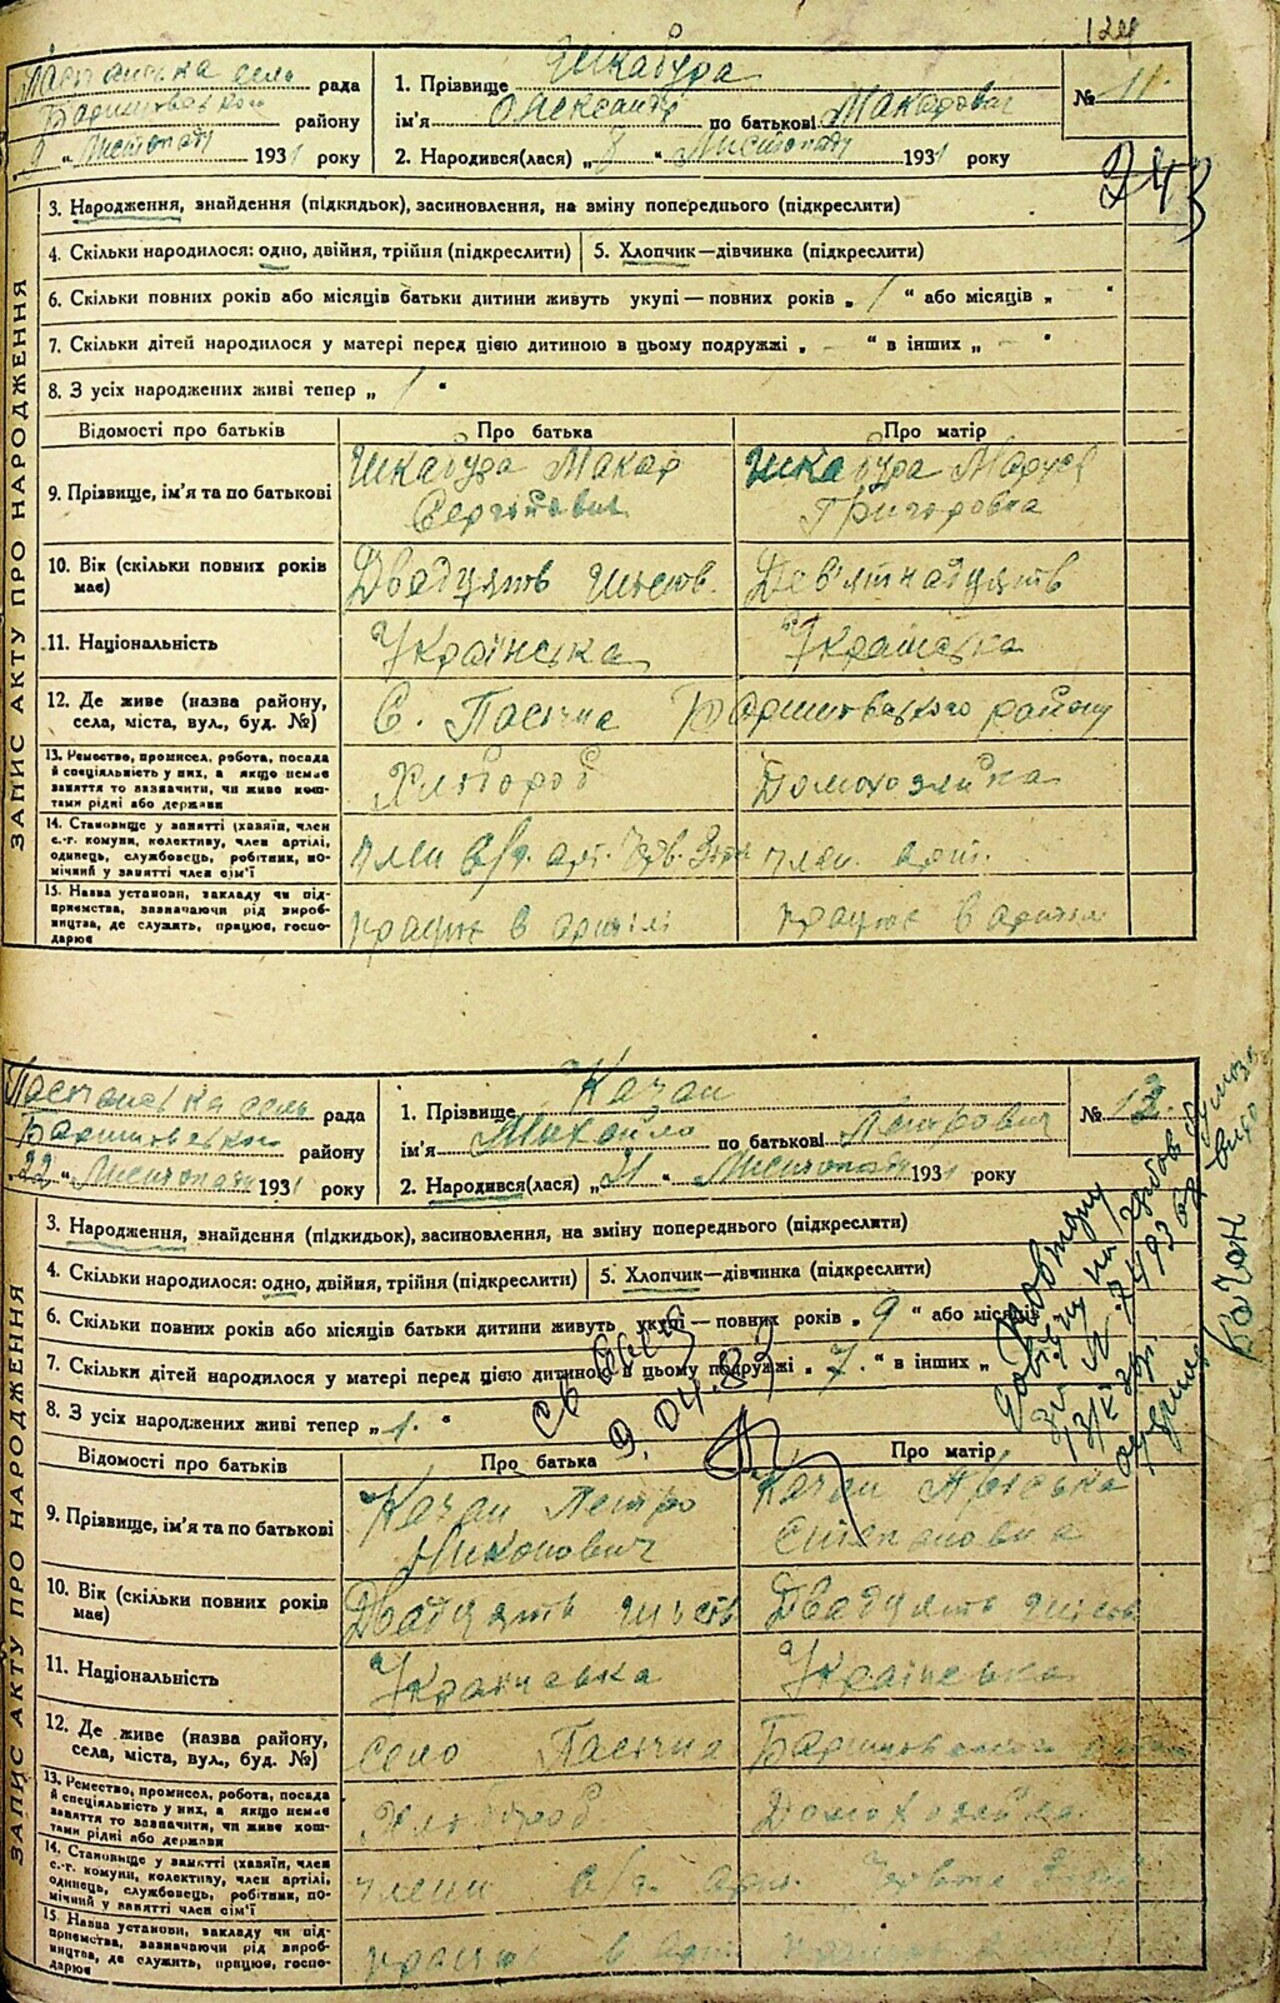 124
сель рада
району
9 " Листопаду 1931 року
1. Прізвище Шкабура
ім'я Олександр по батькові Макарович
2. Народився(лася) „ 8 " Листопаду 1931 року
№ 11.
243
ЗАПИС АКТУ ПРО НАРОДЖЕННЯ
3. Народження, знайдення (підкидьок), засиновлення, на зміну попереднього (підкреслити)
4. Скільки народилося: одно, двійня, трійня (підкреслити)
5. Хлопчик—дівчинка (підкреслити)
6. Скільки повних років або місяців батьки дитини живуть укупі — повних років „ 1 " або місяців „ — "
7. Скільки дітей народилося у матері перед цією дитиною в цьому подружжі „ — " в інших „ — "
8. З усіх народжених живі тепер „ 1 "
Відомості про батьків
Про батька
Про матір
9. Прізвище, ім'я та по батькові
Шкабура Макар
Сергійович
Шкабура Маруся
Григоровна
10. Вік (скільки повних років має)
Двадцять шість
Дев'ятнадцять
11. Національність
Українська
Українська
12. Де живе (назва району,
села, міста, вул., буд. №)
С. Пасічна Баришовського району
13. Ремество, промисел, робота, посада
й спеціяльність у них, а якщо немає
заняття то зазначити, чи живе кош-
тами рідні або держави
Хлібороб
Домохозяйка
14. Становище у занятті (хазяїн, член
с.-г. комуни, колективу, член артілі,
одинець, службовець, робітник, по-
мічний у занятті член сім'ї
член с/г. арт.
член. арт.
15. Назва установи, закладу чи під-
приємства, зазначаючи рід вироб-
ництва, де служить, працює, госпо-
дарює
працює в артілі
працює в артілі
сель рада
району
22 " Листопаду 1931 року
1. Прізвище Качан
ім'я Михайло по батькові Петрович
2. Народився(лася) „ 21 " Листопаду 1931 року
№ 12.
ЗАПИС АКТУ ПРО НАРОДЖЕННЯ
3. Народження, знайдення (підкидьок), засиновлення, на зміну попереднього (підкреслити)
4. Скільки народилося: одно, двійня, трійня (підкреслити)
5. Хлопчик—дівчинка (підкреслити)
6. Скільки повних років або місяців батьки дитини живуть укупі — повних років „ 9 " або місяців
7. Скільки дітей народилося у матері перед цією дитиною в цьому подружжі „ 7. " в інших „
8. З усіх народжених живі тепер „ 1. "
9.04.87
Відомості про батьків
Про батька
Про матір
9. Прізвище, ім'я та по батькові
Качан Петро
Никонович
Качан
Степановна
10. Вік (скільки повних років має)
Двадцять шість
Двадцять шість
11. Національність
Українська
Українська
12. Де живе (назва району,
села, міста, вул., буд. №)
село Пасічна
13. Ремество, промисел, робота, посада
й спеціяльність у них, а якщо немає
заняття то зазначити, чи живе кош-
тами рідні або держави
Хлібороб
Домохозяйка
14. Становище у занятті (хазяїн, член
с.-г. комуни, колективу, член артілі,
одинець, службовець, робітник, по-
мічний у занятті член сім'ї
члени с/г. арт.
15. Назва установи, закладу чи під-
приємства, зазначаючи рід вироб-
ництва, де служить, працює, госпо-
дарює
працює в арт